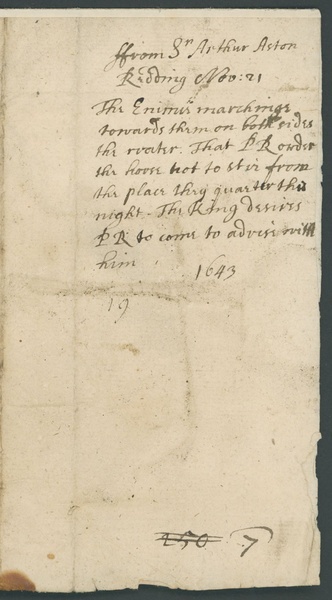 ffrom Sr Arthur Aston
Redding Nov: 21
The Enimie marchinge
towards them on both sides
the water. That PR order
the horse not to stir from
the place they quarter this
night. The King desires
PR to come to advise with
him
1643
19
250 7